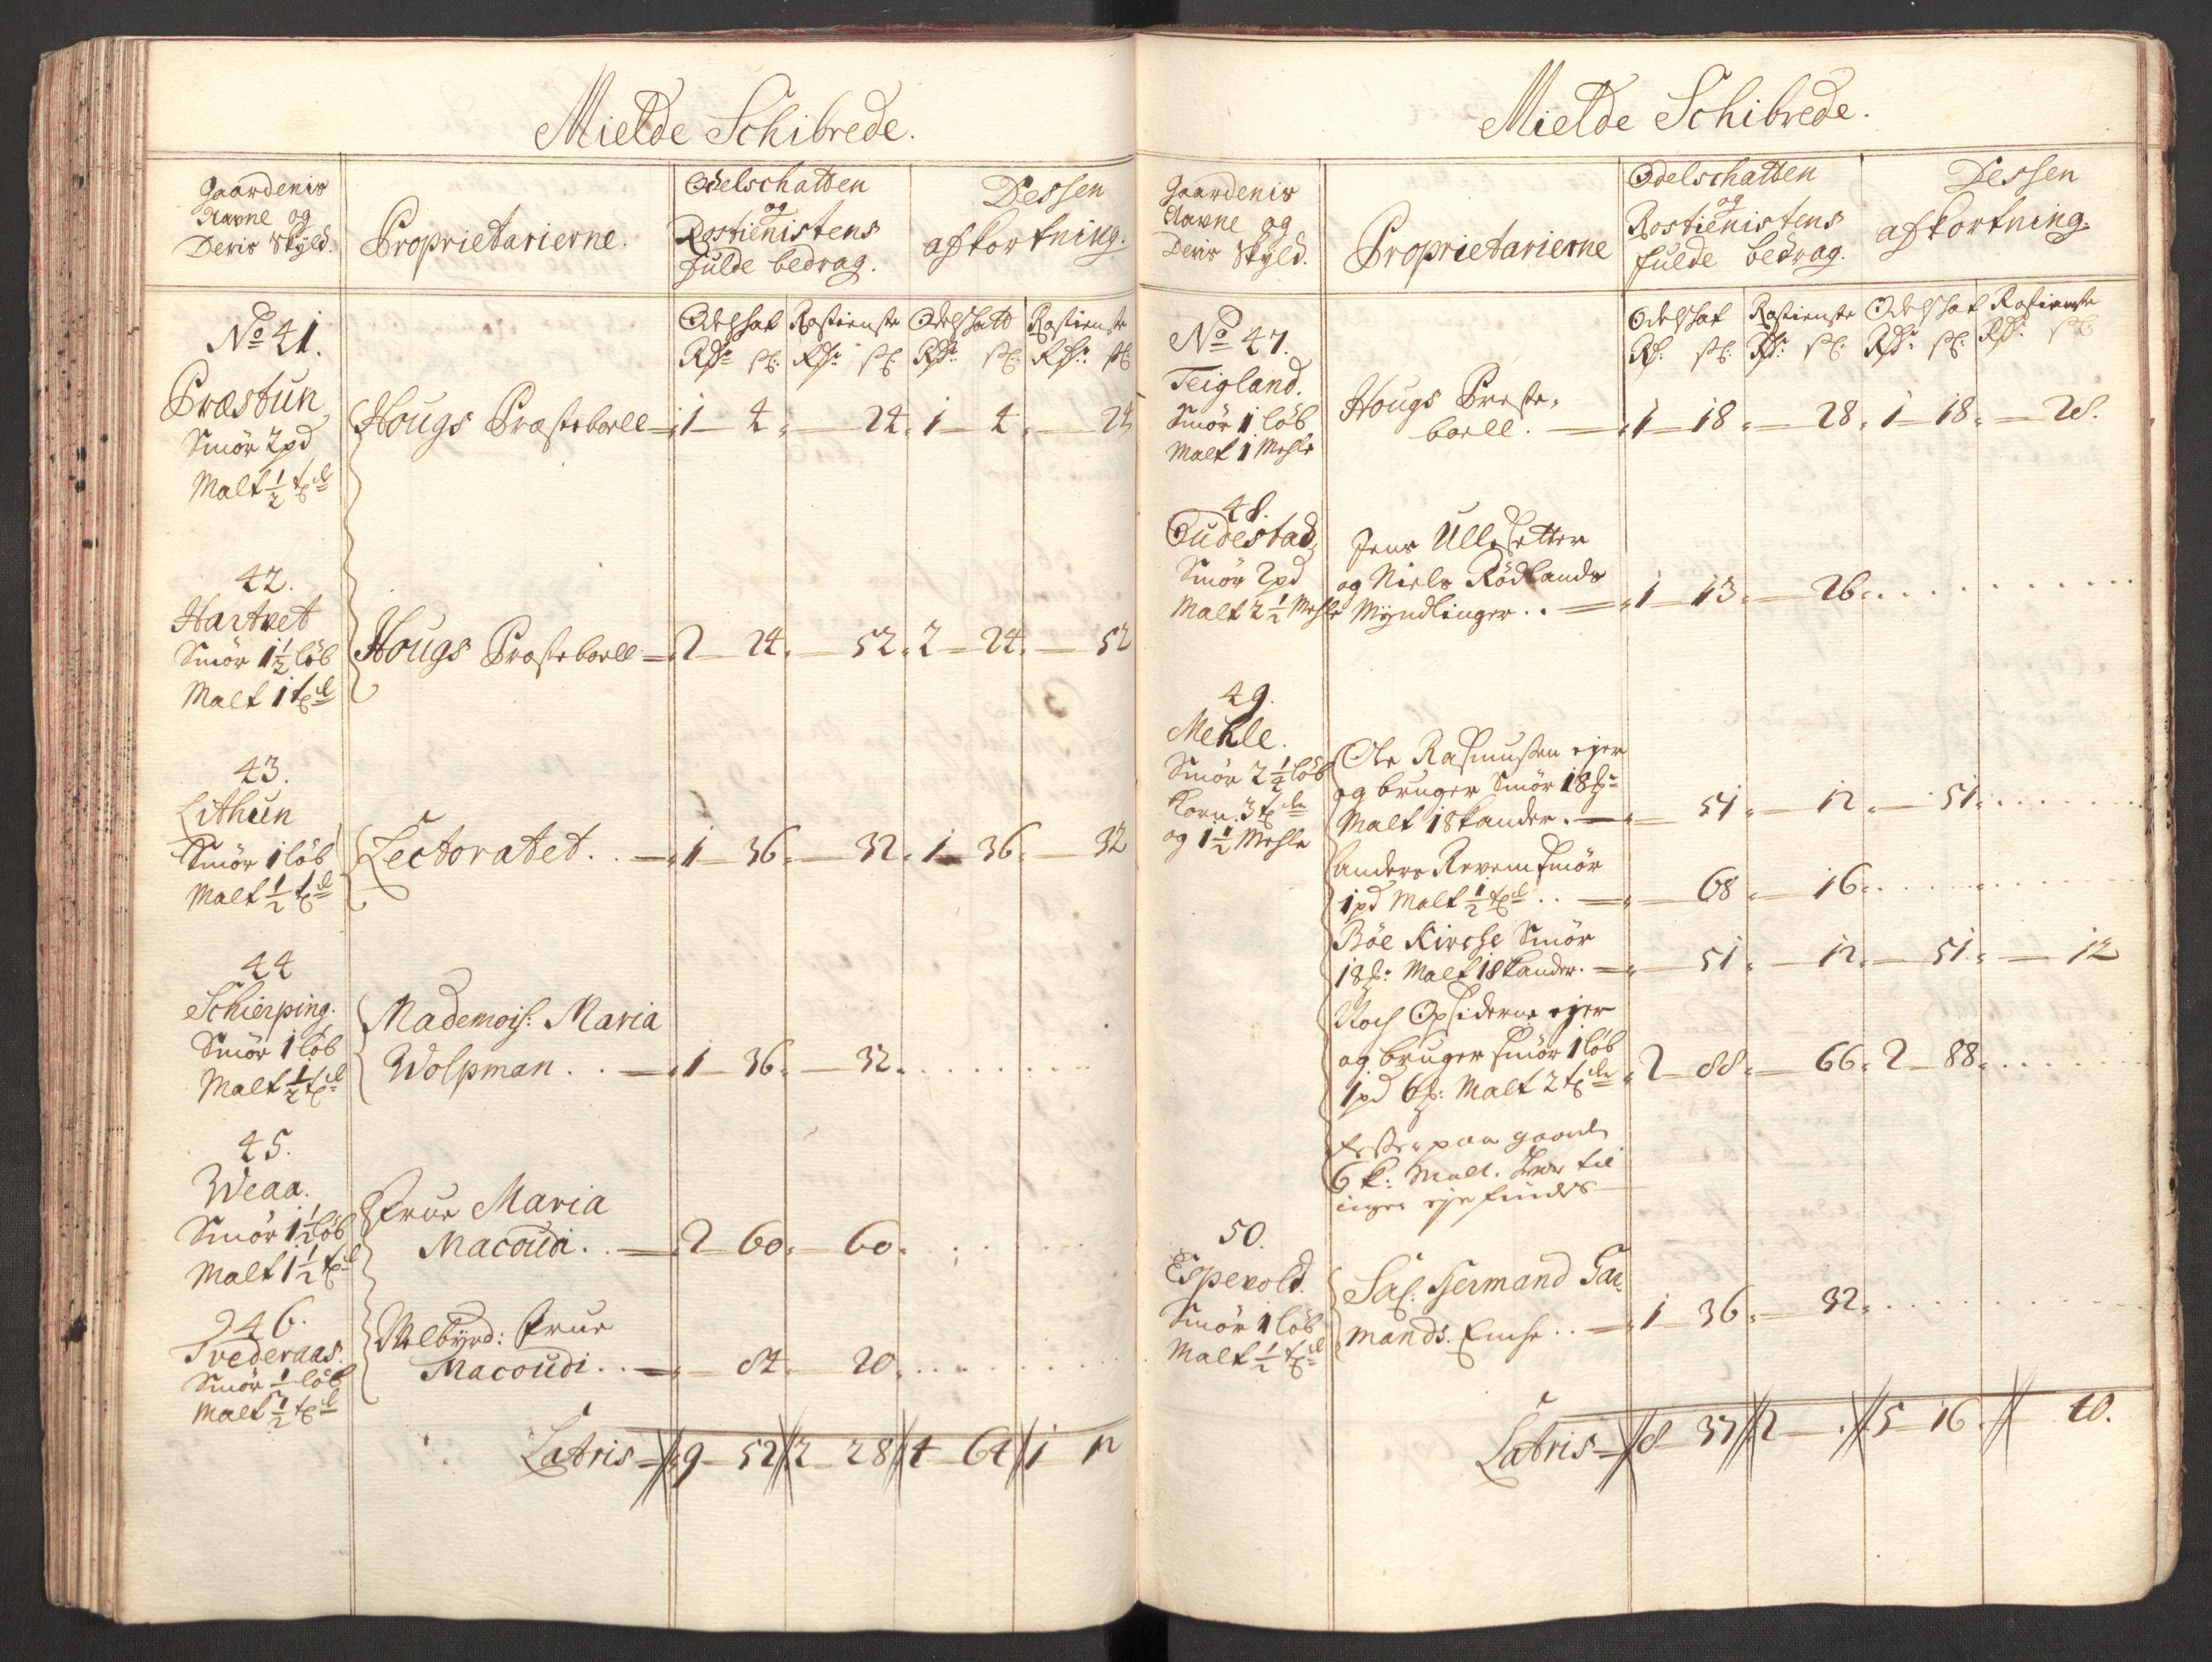 Mielde Schibrede.
Gaardenis
Navne og
Deris Skyld.
Proprietarierne.
Odelschatten
og
Rostienistens
fulde bedrag.
Dessen
afkortning.
Odelshat Rostienste Odelshatt Rostienste
Rdr. sk. Rdr. sk. Rdr. sk. Rdr. sk.
No 41.
Præstun
Smör 2 pd
Malt ½ td
Hougs Præsteboell 1 4. 24. 1 4. 24
42.
Hartvet
Smör 1½ löb
Malt 1 td
Hougs Præsteboell 2 24. 52. 2 24. 52
43.
Lithun
Smör 1 löb
Malt ½ td
Lectoratet. 1 36. 32. 1 36. 32
44
Schierping.
Smör 1 löb
Malt ½ td
Mademois: Maria
Wolpman . . 1 36. 32.
45.
Weaa.
Smör 1½ löb
Malt 1½ td
Frue Maria
Macoudi . . 2 60. 60.
46.
Tvederaas.
Smör ½ löb
Malt ½ td
Welbyrd: Frue
Macoudi . . 84. 20.
Latris 9 52 2 28 4 64 1 12
Mielde Schibrede.
Gaardenis
Navne og
Deris Skyld.
Proprietarierne
Odelschatten
og
Rostienistens
fulde bedrag.
Dessen
afkortning.
Odelshat Rostienste Odelshat Rostienste
Rdr. sk. Rdr. sk. Rdr. sk. Rdr. sk.
No 47.
Teigland.
Smör 1 löb
Malt 1 Mehle
Hougs Preste-
boell. 1 18. 28. 1 18. 28.
48.
Oudestad
Smör 2 pd
Malt 2½ Mehle
Jens Ullesetter
og Niels Rödlands
Myndlinger . . 1 13. 26.
49.
Mehle.
Smör 2¼ löb
Korn. 3 tde
og 1½ Mehle
Ole Rasmussen ejer
og bruger Smör 18 .
Malt 18 kander. 51. 12. 51.
Anders Revem Smör
1 pd Malt ½ td . . 68. 16.
Böe Kirche Smör
18 . Malt 18 kander. 51. 12. 51. 12
Noch Opsiderne ejer
og bruger Smör 1 löb
1 pd 6 . Malt 2 tde 2 88. 66. 2 88.
paa gaarde
6 k: Malt. til
ingen ejer findes
50.
Espevold.
Smör 1 löb
Malt ½ td
Sal. Hermand Gar-
mands. Enche . . 1 36. 32.
Latris 8 37 2 . 5 16. 40.